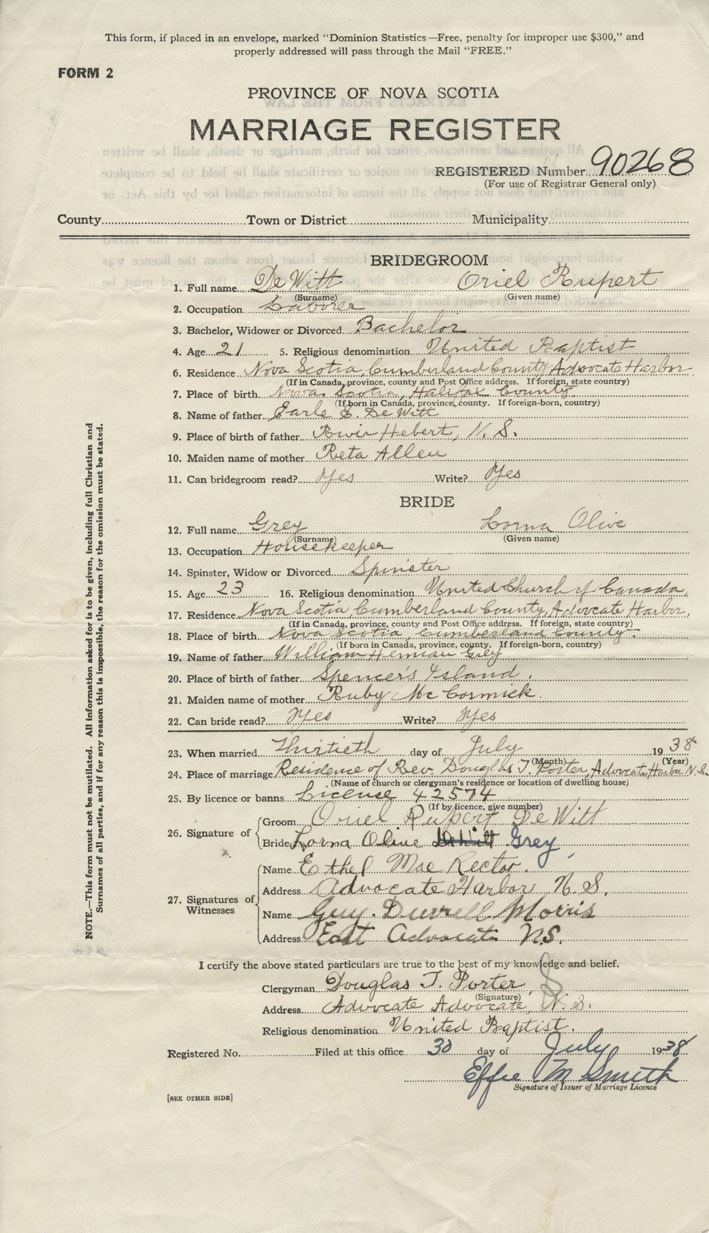 This form, if placed in an envelope, marked "Dominion Statistics—Free, penalty for improper use $300," and
properly addressed will pass through the Mail "FREE."
FORM 2
PROVINCE OF NOVA SCOTIA
MARRIAGE REGISTER
REGISTERED Number 90268
(For use of Registrar General only)
County Town or District Municipality
BRIDEGROOM
1. Full name De Witt Oriel Rupert
(Surname) (Given name)
2. Occupation Laborer
3. Bachelor, Widower or Divorced Bachelor
4. Age 21 5. Religious denomination United Baptist
6. Residence Nova Scotia, Cumberland County, Advocate Harbor
(If in Canada, province, county and Post Office address. If foreign, state country)
7. Place of birth Nova Scotia, Halifax County.
(If born in Canada, province, county. If foreign-born, country)
8. Name of father Earle E. De Witt
9. Place of birth of father River Hebert, N. S.
10. Maiden name of mother Reta Allen
11. Can bridegroom read? Yes Write? Yes
BRIDE
12. Full name Grey Lorna Olive
(Surname) (Given name)
13. Occupation Housekeeper
14. Spinster, Widow or Divorced Spinster
15. Age 23 16. Religious denomination United Church of Canada,
17. Residence Nova Scotia Cumberland County, Advocate Harbor,
(If in Canada, province, county and Post Office address. If foreign, state country)
18. Place of birth Nova Scotia, Cumberland County.
(If born in Canada, province, county. If foreign-born, country)
19. Name of father William Heman Grey
20. Place of birth of father Spencer's Island.
21. Maiden name of mother Ruby Mc Cormick.
22. Can bride read? Yes Write? Yes
23. When married Thirtieth day of July 1938
(Month) (Year)
24. Place of marriage Residence of Rev. Douglas T. Porter, Advocate Harbor N.S.
(Name of church or clergyman's residence or location of dwelling house)
25. By licence or banns License 42574
(If by licence, give number)
26. Signature of Groom Oriel Rupert De Witt
Bride Lorna Olive Grey
27. Signatures of Witnesses
Name Ethel Mae Rector.
Address Advocate Harbor N. S.
Name Guy. Durrell Morris
Address East Advocate N.S.
I certify the above stated particulars are true to the best of my knowledge and belief.
Clergyman Douglas T. Porter,
(Signature)
Address Advocate Advocate, N. S.
Religious denomination United Baptist.
Registered No. Filed at this office 30 day of July 1938
Effie M Smith
Signature of Issuer of Marriage Licence
[SEE OTHER SIDE]
NOTE.—This form must not be mutilated. All information asked for is to be given, including full Christian and
Surnames of all parties, and if for any reason this is impossible, the reason for the omission must be stated.